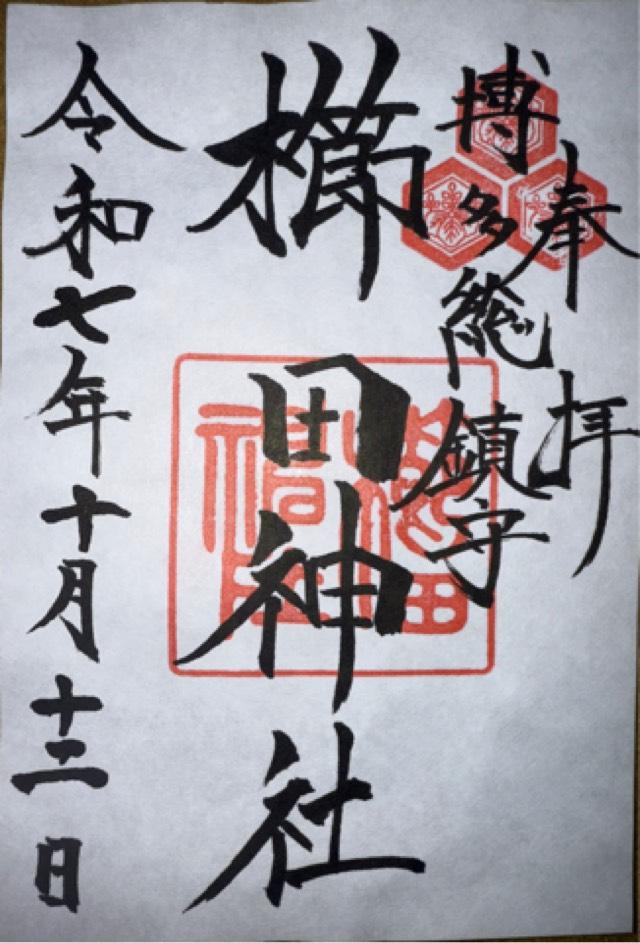 奉拝
博多総鎮守
櫛田神社
令和七年十月十二日